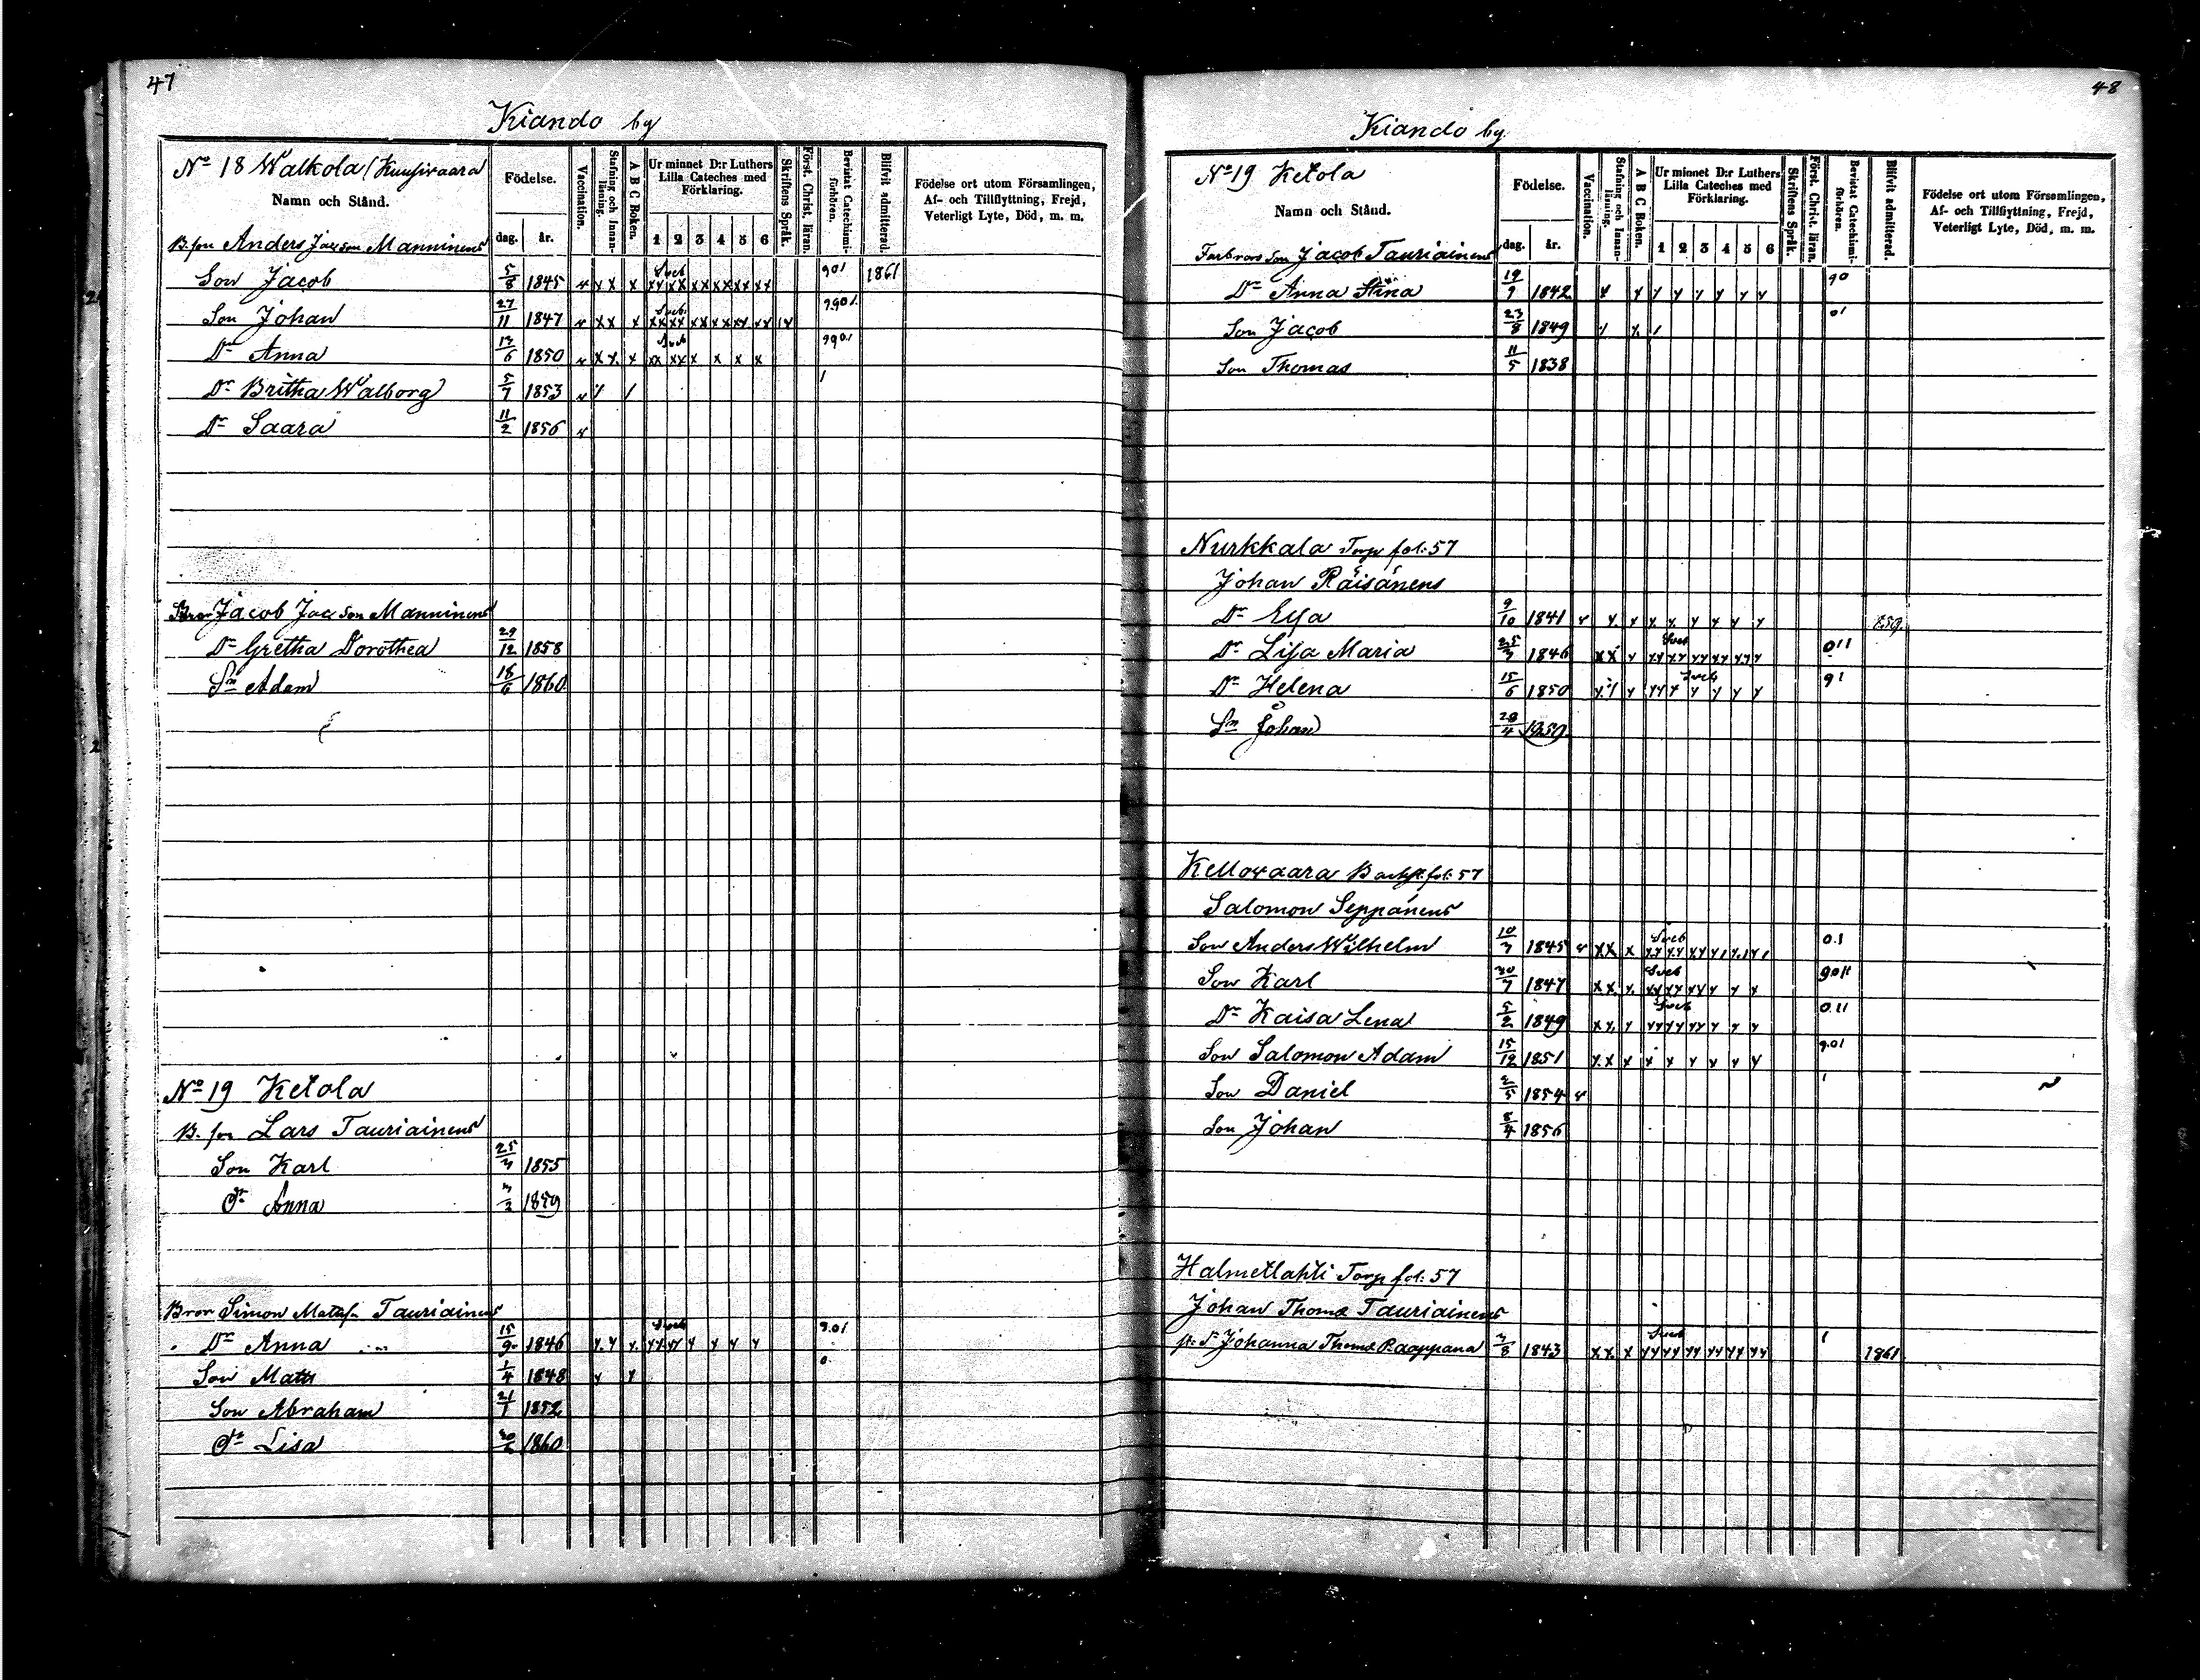 47
Kiando by
No 18 Walkola / Kuusivaara
Namn och Stånd.
Födelse.
dag. år.
Vaccination.
Stafning och Innanläsning.
A B C Boken.
Ur minnet D:r Luthers Lilla Cateches med Förklaring.
1 2 3 4 5 6
Skriftens Språk.
Först. Christ. läran.
Bevistat Catechismiförhören.
Blifvit admitterad.
Födelse ort utom Församlingen, Af- och Tillflyttning, Frejd, Veterligt Lyte, Död, m. m.
B. fon Anders Jacson Manninens
Son Jacob 5/8 1845 v x x x Sveb xx xx xx xx xx xx 901 1861
Son Johan 27/11 1847 v x x x Sveb xx xx xx xx xx xx 9901
Dr Anna 13/6 1850 v x x x Sveb xx xx x x x x 9901
Dr Britha Walborg 5/7 1853 v / / 1
Dr Saara 11/2 1856 v
Bror Jacob Jacson Manninens
Dr Gretha Dorothea 29/12 1858
Sn Adam 18/6 1860
No 19 Ketola
B. fon Lars Tauriainens
Son Karl 25/3 1855
Dr Anna 1859
Bror Simon Matsson Tauriainens
Dr Anna 15/9 1846 x x x Sveb xx xx x x x x 901
Son Matts 1/4 1848 x x 0
Son Abraham 21/1 1852
Dr Lisa 1860
48
Kiando by
No 19 Ketola
Namn och Stånd.
Födelse.
dag. år.
Vaccination.
Stafning och Innanläsning.
A B C Boken.
Ur minnet D:r Luthers Lilla Cateches med Förklaring.
1 2 3 4 5 6
Skriftens Språk.
Först. Christ. läran.
Bevistat Catechismiförhören.
Blifvit admitterad.
Födelse ort utom Församlingen, Af- och Tillflyttning, Frejd, Veterligt Lyte, Död, m. m.
Farbrors Son Jacob Tauriainens
Dr Anna Stina 19/9 1842 x x x x x x x x 90
Son Jacob 23/8 1849 x x / 01
Son Thomas 11/5 1838
Nurkkala Torp fol: 57
Johan Räisänens
Dr Elsa 9/10 1841 v x x x x x x x x 859
Dr Lisa Maria 25/3 1846 x x x Sveb xx xx xx xx xx x 011
Dr Helena 15/6 1850 x / x Sveb xx x x x x x 91
Sn Johan 28/4 1859
Kellovaara Backst. fol: 57
Salomon Seppänens
Son Anders Wilhelm 10/3 1845 v x x x Sveb xx xx xx x/ x/ x/ 01
Son Karl 30/7 1847 x x x Sveb xx xx xx x x x 9011
Dr Kaisa Lena 5/2 1849 x x x Sveb xx xx xx x x x 011
Son Salomon Adam 15/12 1851 x x x x x x x x x 901
Son Daniel 2/5 1854 v 1
Son Johan 8/4 1856
Halmetlahti Torp fol: 57
Johan Thomæ Tauriainens
Johanna Thomæ Raappana 3/8 1843 x x x Sveb xx xx xx xx xx xx 1 1861